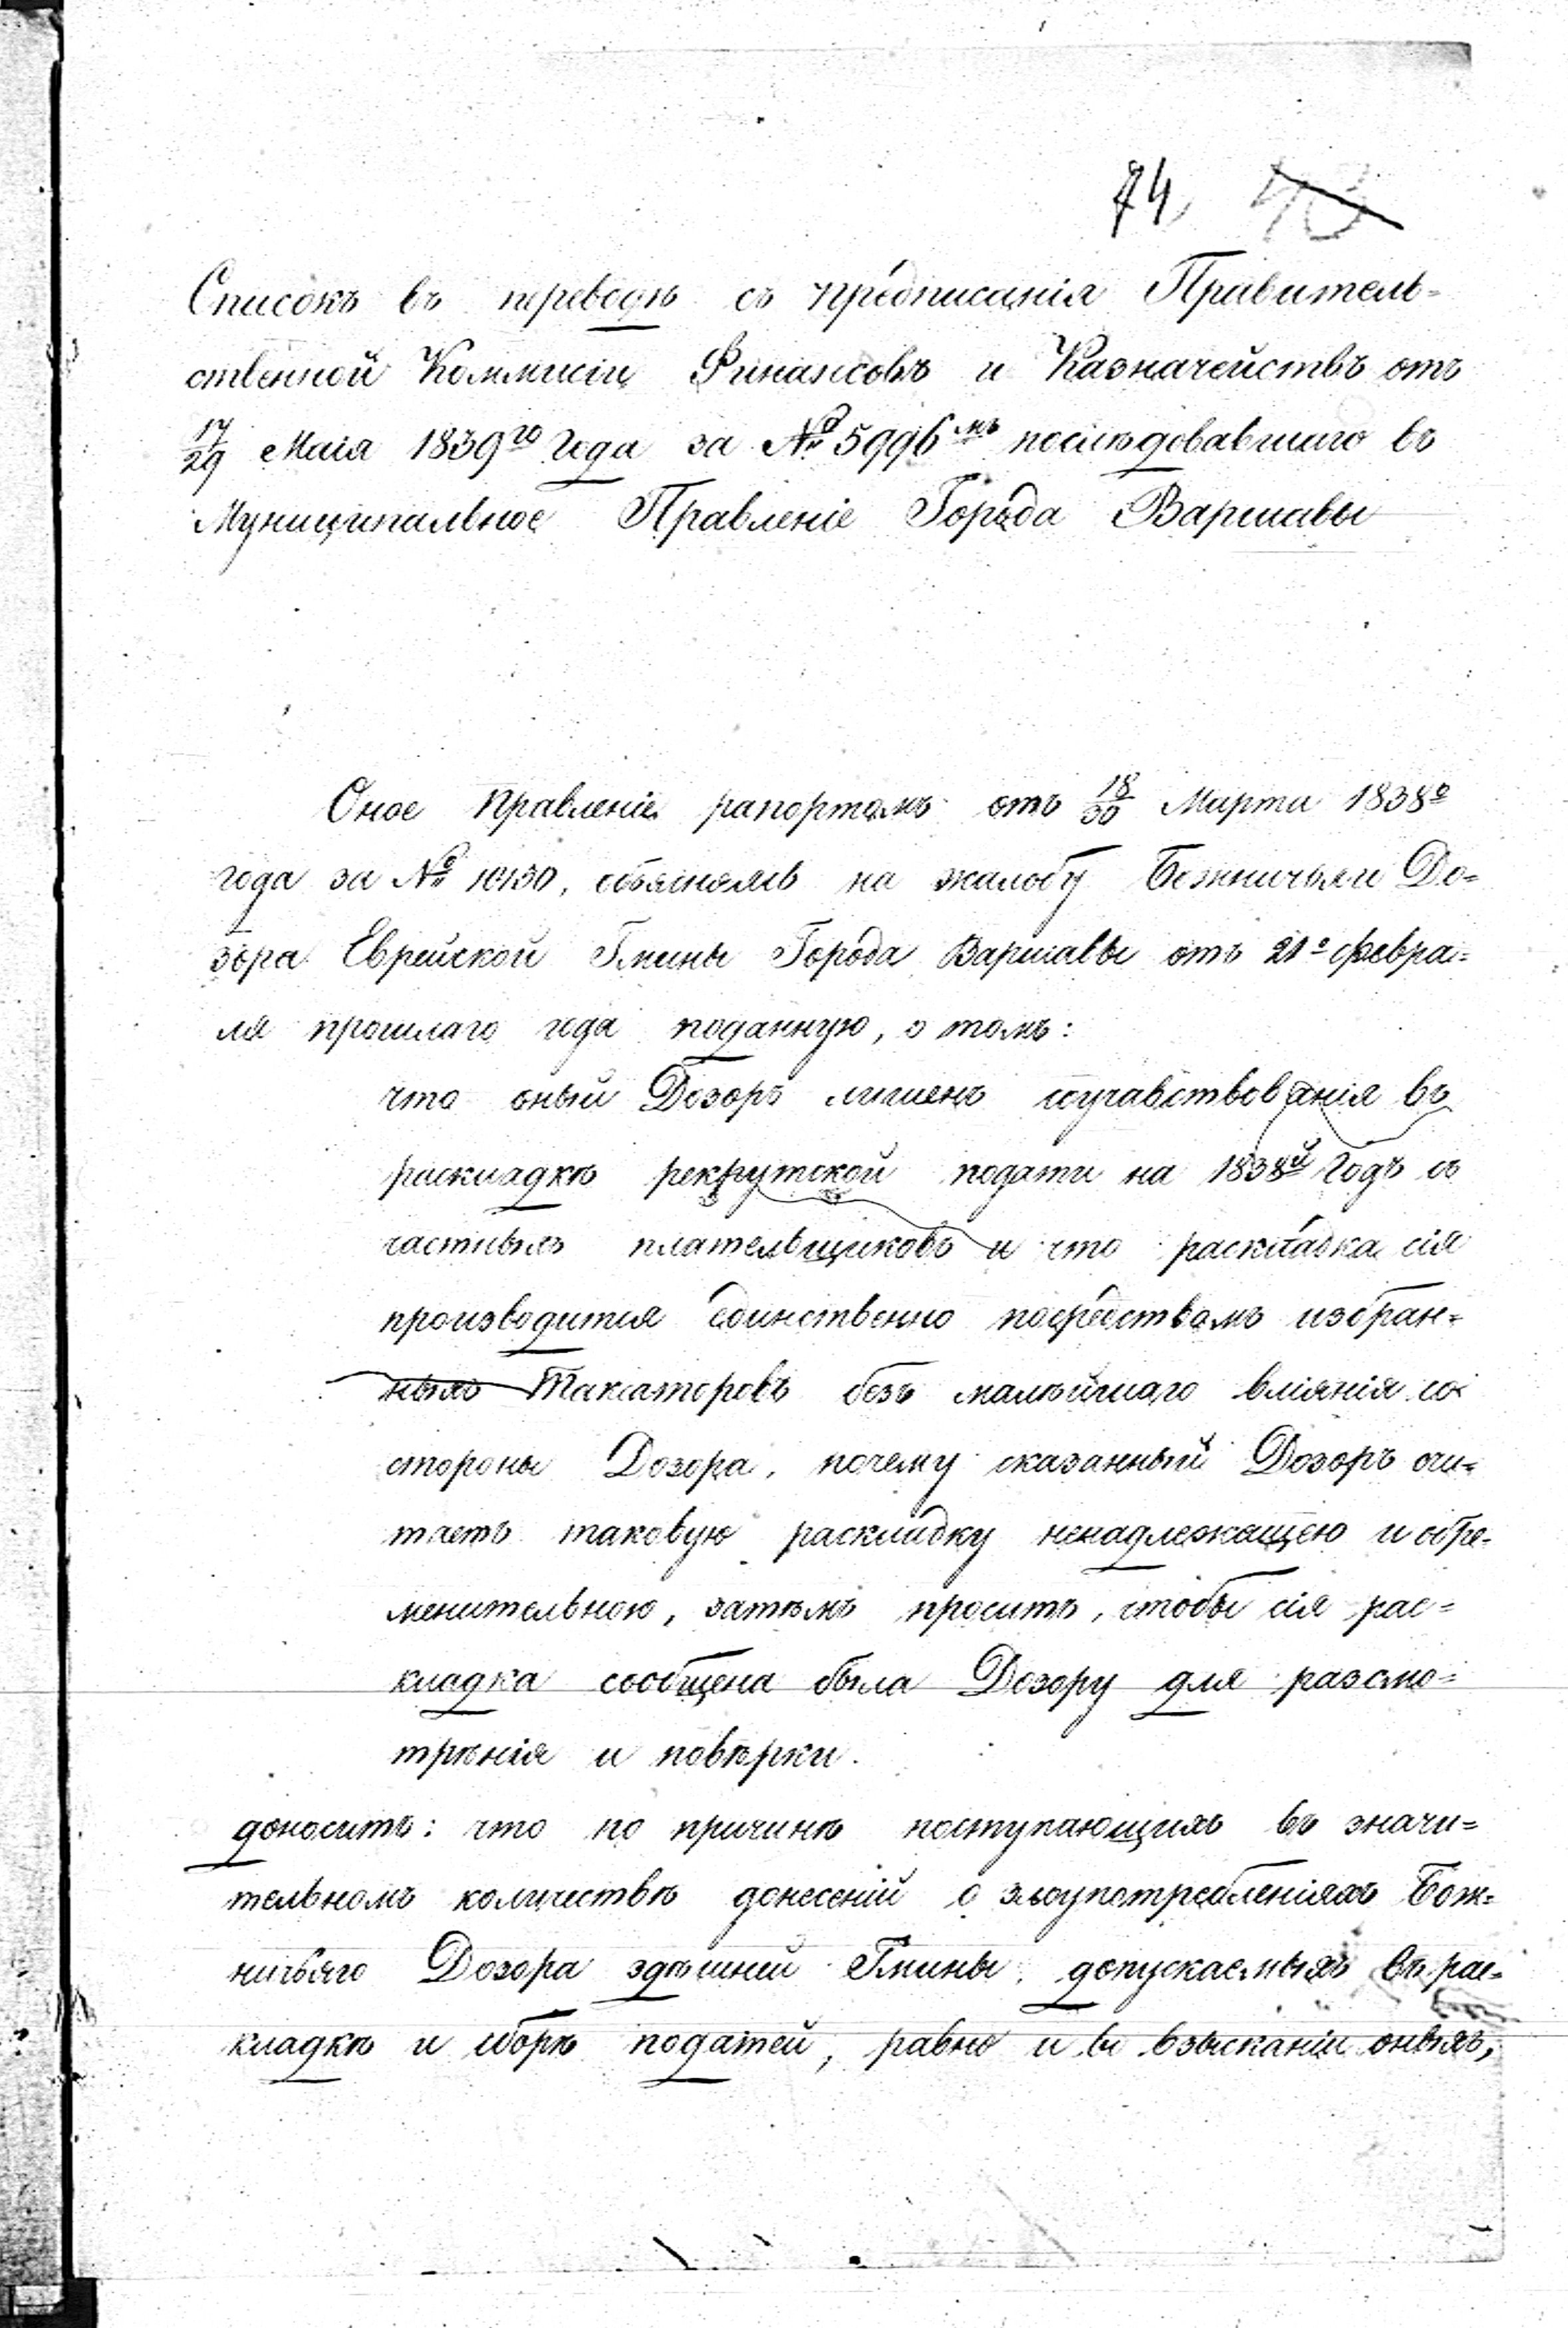 74 43
Списокъ въ переводѣ съ предписанія Правитель=
ственной Коммисіи Финансовъ и Казначействъ отъ
17/29 Маія 1839го Года за № 5996мъ послѣдовавшаго въ
Муниципальное Правленіе Города Варшавы
Оное Правленіе рапортомъ отъ 18/30 Марта 1838го
года за № 10130, объясняя на жалобу Божничьяго До=
зора Еврейской Гмины Города Варшавы отъ 21го Февра=
ля прошлаго года поданную, о томъ:
что оный Дозоръ лишенъ соучавствованія въ
раскладкѣ рекрутской подати на 1838й Годъ съ
частныхъ плательщиковъ и что раскладка сія
производится единственно посредствомъ избран=
ныхъ Таксаторовъ безъ малѣйшаго вліянія со
стороны Дозора, почему сказанный Дозоръ счи=
таетъ таковую раскладку ненадлежащею и обре=
менительною, затѣмъ проситъ, чтобы сія рас=
кладка сообщена была Дозору для разсмо=
трѣнія и повѣрки.
доноситъ: что по причинѣ поступающихъ въ значи=
тельномъ количествѣ донесеній о злоупотребленіяхъ Бож=
ничьяго Дозора здѣшней Гмины, допускаемыхъ въ рас=
кладкѣ и сборѣ податей, равно и въ взысканіи оныхъ,